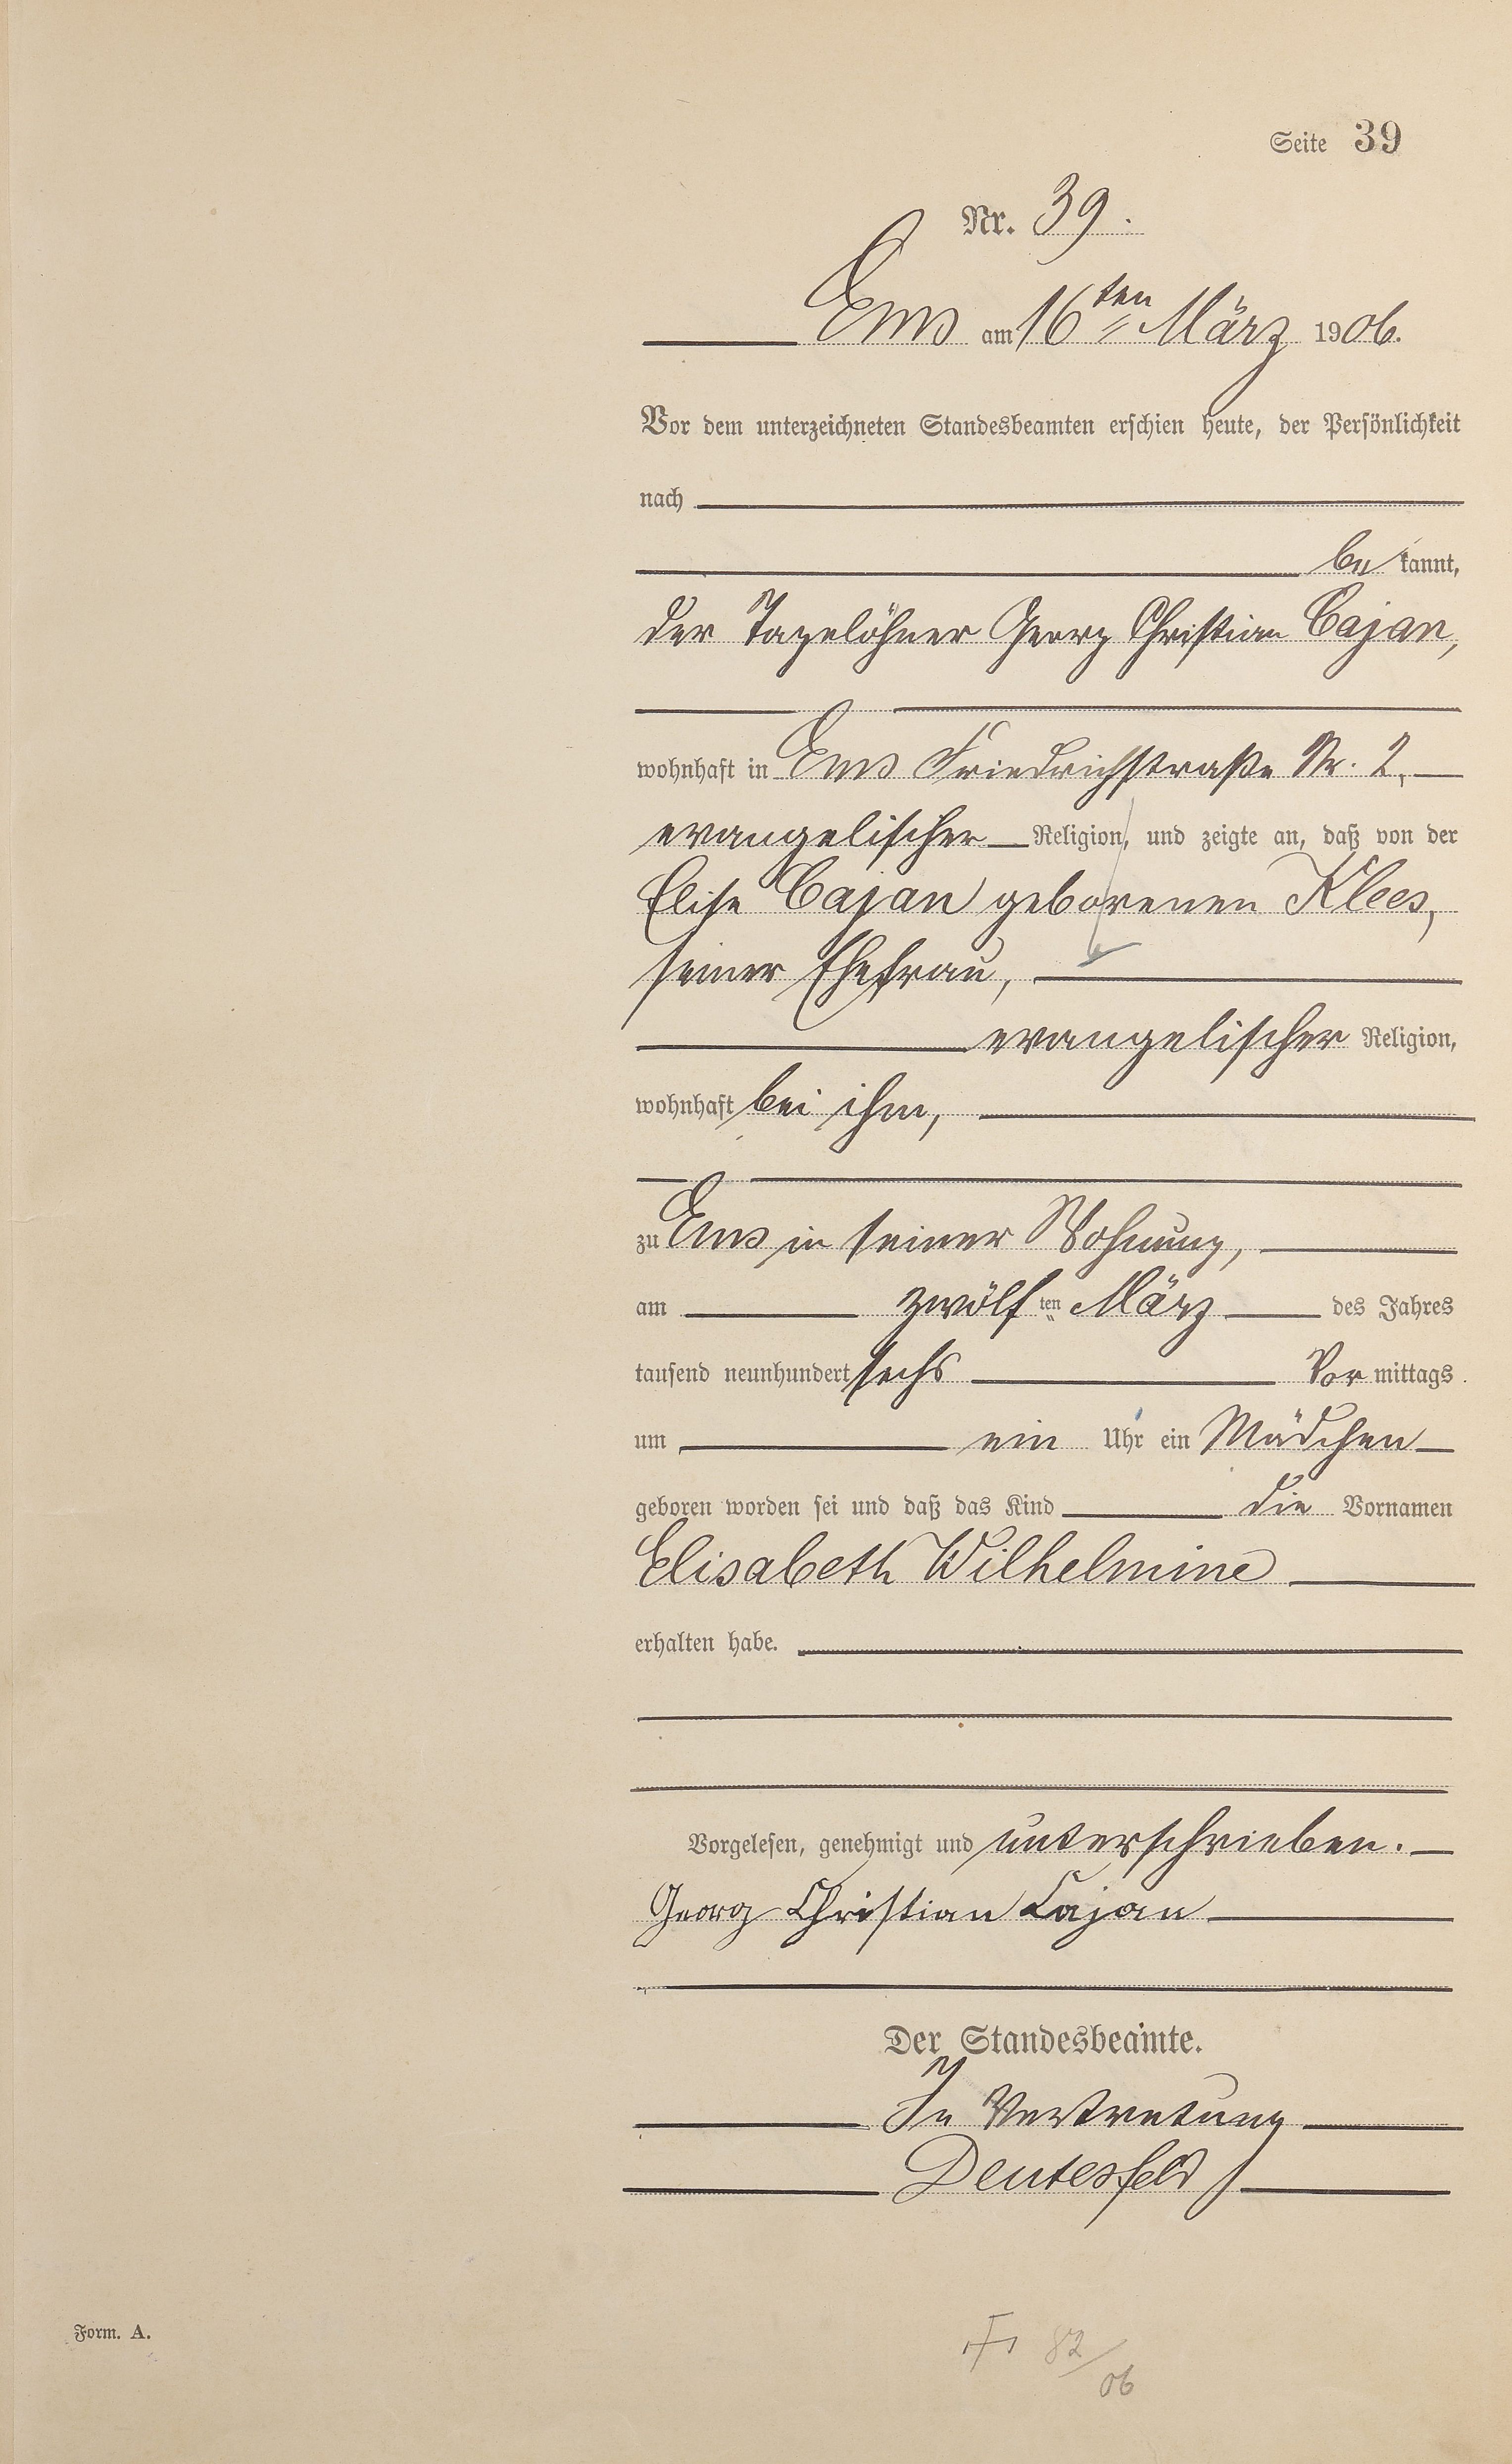 Seite 39
Nr. 39.
Ems am 16ten März 1906.
Vor dem unterzeichneten Standesbeamten erschien heute, der Persönlichkeit
nach
be kannt,
der Tagelöhner Georg Christian Cajan,
wohnhaft in Ems Friedrichstraße Nr. 2,
evangelischer Religion, und zeigte an, daß von der
Elise Cajan geborenen Klees,
seiner Ehefrau,
evangelischer Religion,
wohnhaft bei ihm,
zu Ems in seiner Wohnung,
am zwölf ten März des Jahres
tausend neunhundert sechs Vor mittags
um ein Uhr ein Mädchen
geboren worden sei und daß das Kind die Vornamen
Elisabeth Wilhelmine
erhalten habe.
Vorgelesen, genehmigt und unterschrieben.
Georg Christian Cajan
Der Standesbeamte.
In Vertretung
Deutesfeld
Form. A.
82/06